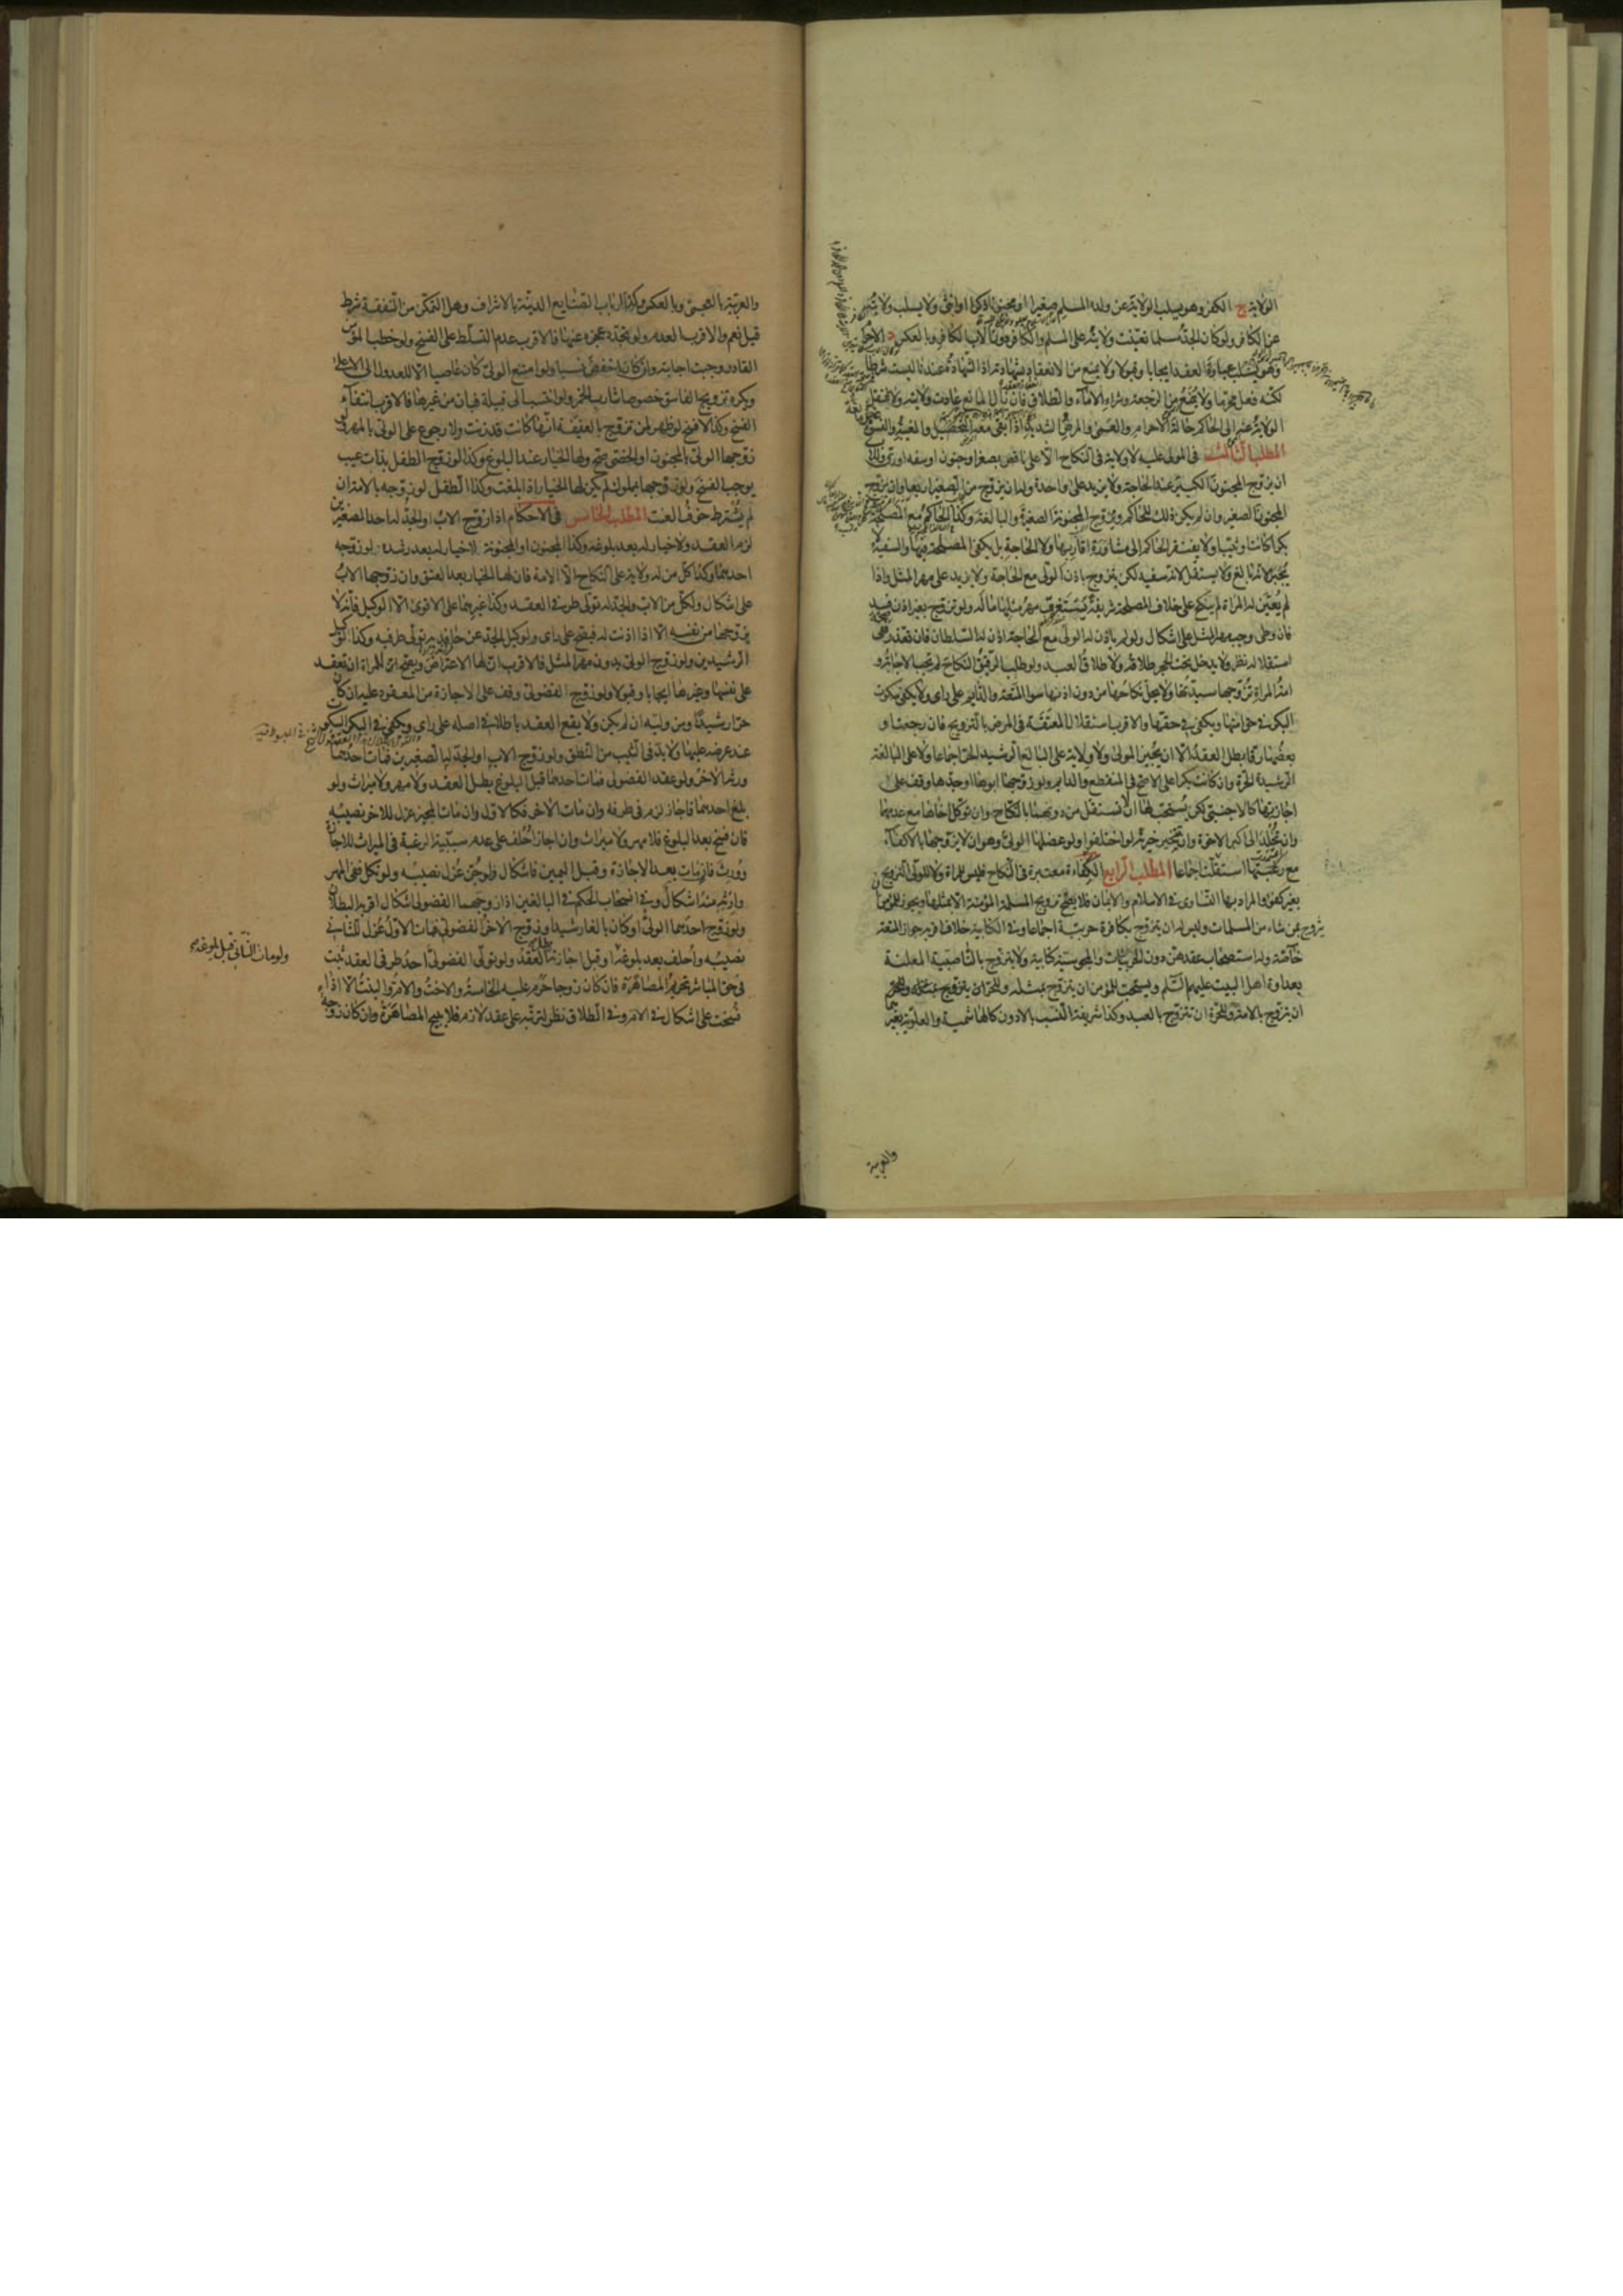 الولاية ج الكفر وهو يسلب الولاية عن ولده المسلم صغيرا او مجنونا ذكرا او انثى ولا يسلب ولايته
عن الكافر ولو كان الجد مسلما تعينت ولايته على المسلم والكافر دون الاب الكافر وبالعكس د الاحرام
وهو يسلب عبارة العقد ايجابا وقبولا ولا يمنع من الانعقاد بشهادته اذ الشهادة عندنا ليست شرطا
لكنه فعل محرما ولا يمنع من الرجعة وشراء الاماء والطلاق فان زال المانع عادت ولايته ولا تنتقل
الولاية عنه الى الحاكم حالة الاحرام والعمى والمرض الشديد اذا بقى معه التحصيل والغيبة والفسق
المطلب الثالث في المولى عليه لا ولاية في النكاح الا على ناقص بصغر او جنون او سفه او رق وللولى
ان يزوج المجنون الكبير عند الحاجة ولا يزيد على واحدة وله ان يزوج من الصغير اربعا وان يزوج
المجنون الصغير وان لم يكن ذلك للحاكم ويزوج المجنونة الصغيرة والبالغة وكذا الحاكم مع المصلحة
بكرا كانت او ثيبا ولا يفتقر الحاكم الى مشاورة اقاربها ولا الحاجة بل يكفي المصلحة فيها والسفيه لا
يجبر لانه بالغ ولا يستقل لانه سفيه لكن يتزوج باذن الولى مع الحاجة ولا يزيد على مهر المثل واذا
لم يعين له المراة لم ينكح على خلاف المصلحة شريفة يستغرق مهر مثلها ماله ولو تزوج بغير اذن فسد
فان وطى وجب مهر المثل على اشكال ولو لم ياذن له الولى مع الحاجة اذن له السلطان فان تعذر ففى
استقلاله نظر ولا يدخل تحت الحجر طلاقه ولا طلاق العبد ولو طلب الرقيق النكاح لم تجب الاجابة و
امة المراة تزوجها سيدتها ولا يحل نكاحها من دون اذنها سواء المتعة والدايم على راى ولا يكفي سكوت
البكر في حق امتها ويكفي في حقها والاقرب استقلال المعتقة في المرض بالتزويج فان رجعت او
بعضها رقا بطل العقد الا ان يجيز المولى ولا ولاية على البالغ الرشيد الحر اجماعا ولا على البالغة
الرشيدة الحرة وان كانت بكرا على الاصح في المنقطع والدايم ولو زوجها ابوها او جدها وقف على
اجازتها كالاجنبي لكن يستحب لها ان لا تستقل من دونهما بالنكاح وان توكل اخاها مع عدمهما
وان تخلد الى اكبر الاخوة وان تتخير خيرته لو اختلفوا ولو عضلها الولى وهو ان لا يزوجها بالاكفاء
مع رغبتها استقلت اجماعا المطلب الرابع الكفاءة معتبرة في النكاح فليس للمراة ولا للولى التزويج
بغير كفؤ والمراد بها التساوى في الاسلام والايمان فلا يصح تزويج المسلمة المؤمنة الا بمثلها ويجوز للمؤمن ان
يتزوج بمن شاء من المسلمات وليس له ان يتزوج بكافرة حربية اجماعا وفي الكتابية خلاف اقربه جواز المتعة
خاصة وله استصحاب عقدهن دون الحربيات والمجوسية كتابية ولا يتزوج بالناصبية المعلنة
بعداوة اهل البيت عليهم السلم ويستحب للمؤمن ان يتزوج بمثله وللحر ان يتزوج
ان يتزوج بالامة وللحرة ان تتزوج بالعبد وكذا شريفة النسب بالادون كالهاشمية والعلوية بغيرهما
والعربية
والعربية بالعجمي وبالعكس وكذا ارباب الصنايع الدنية بالاشراف وهل التمكن من النفقة شرط
قيل نعم والاقرب العدم ولو تجدد عجزه عنها فالاقرب عدم التسلط على الفسخ ولو خطب المؤمن
القادر وجبت اجابته وان كان اخفض نسبا ولو امتنع الولى كان عاصيا الا للعدول الى الاعلى
ويكره تزويج الفاسق خصوصا شارب الخمر ولو انتسب الى قبيلة فبان من غيرها فالاقرب انتفاء
الفسخ وكذا لا فسخ لو ظهر لمن تزوج بالعفيفة انها كانت قد زنت ولا رجوع على الولى بالمهر ولو
زوجها الولى بالمجنون او الخصى صح ولها الخيار عند البلوغ وكذا لو زوج الطفل بذات عيب
يوجب الفسخ ولو زوجها بمملوك لم يكن لها الخيار اذا بلغت وكذا الطفل لو زوجه بالامة ان
لم يشترط خوف العنت المطلب الخامس في الاحكام اذا زوج الاب او الجد له احد الصغيرين
لزم العقد ولا خيار له بعد بلوغه وكذا المجنون او المجنونة لا خيار له بعد رشده لو زوجه
احدهما وكذا كل من له ولاية على النكاح الا الامة فان لها الخيار بعد العتق وان زوجها الاب
على اشكال ولكل من الاب والجد له تولى طرفي العقد وكذا غيرهما على الاقوى الا الوكيل فانه لا
يزوجها من نفسه الا اذا اذنت له فيصح على راى ولوكيل الجد عن حافديه تولى طرفيه وكذا لوكيل
الرشيدين ولو زوج الولى بدون مهر المثل فالاقرب ان لها الاعتراض ويصح ان للمراة ان تعقد
على نفسها وغيرها ايجابا وقبولا ولو زوج الفضولى وقف على الاجازة من المعقود عليه ان كان
حرا رشيدا ومن وليه ان لم يكن ولا يقع العقد باطلا في اصله على راى ويكفي في البكر السكوت
عند عرضه عليها ولا بد في الثيب من النطق ولو زوج الاب او الجد له الصغيرين فمات احدهما
ورثه الاخر ولو عقد الفضولى فمات احدهما قبل البلوغ بطل العقد ولا مهر ولا ميراث ولو
بلغ احدهما فاجاز لزم في طرفه وان مات الاخر فكالاول وان مات المجيز عزل للاخر نصيبه
فان فسخ بعد البلوغ فلا مهر ولا ميراث وان اجاز احلف على عدم سببية الرغبة في الميراث للاجازة
وورث فان مات بعد الاجازة وقبل اليمين فاشكال ولو جن عزل نصيبه ولو نكل ففى المهر
وارثه منه اشكال وفي انسحاب الحكم في البالغين اذا زوجهما الفضولى اشكال اقربه البطلان
ولو زوج احدهما الولى او كان بالغا رشيدا وزوج الاخر الفضولى فمات الاول عزل للثاني
نصيبه واحلف بعد بلوغه او قبل اجازته بطل العقد ولو تولى الفضولى احد طرفي العقد ثبت
ولو مات الثاني قبل بلوغه
في حق المباشر تحريم المصاهرة فان كان زوجا حرم عليه الخامسة والاخت والام والبنت الا اذا
فسخت على اشكال في الام وفي الطلاق نظر لترتبه على عقد لازم فلا يبيح المصاهرة وان كان زوجة